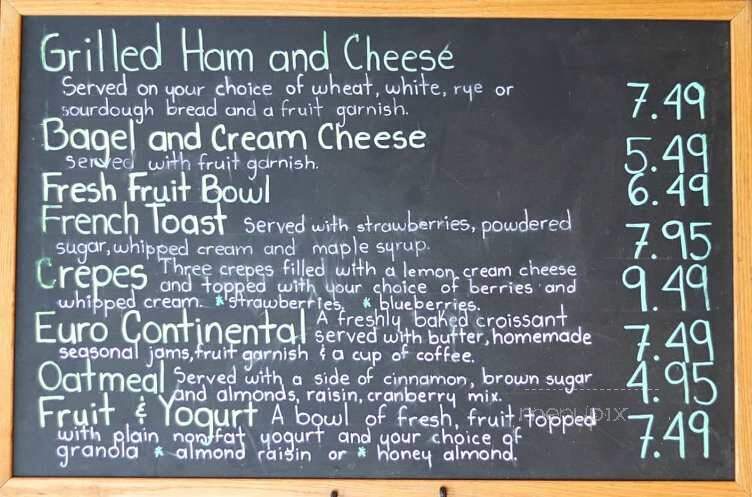 Grilled Ham and Cheese
Served on your choice of wheat, white, rye or
sourdough bread and a fruit garnish. 7.49
Bagel and Cream Cheese
served with fruit garnish. 5.49
Fresh Fruit Bowl 6.49
French Toast Served with strawberries, powdered
sugar, whipped cream and maple syrup. 7.95
Crepes Three crepes filled with a lemon cream cheese
and topped with your choice of berries and
whipped cream. *strawberries * blueberries. 9.49
Euro Continental A freshly baked croissant
served with butter, homemade
seasonal jams, fruit garnish & a cup of coffee. 7.49
Oatmeal Served with a side of cinnamon, brown sugar
and almonds, raisin, cranberry mix. 4.95
Fruit & Yogurt A bowl of fresh, fruit, topped
with plain nonfat yogurt and your choice of
granola * almond raisin or * honey almond. 7.49
menupix